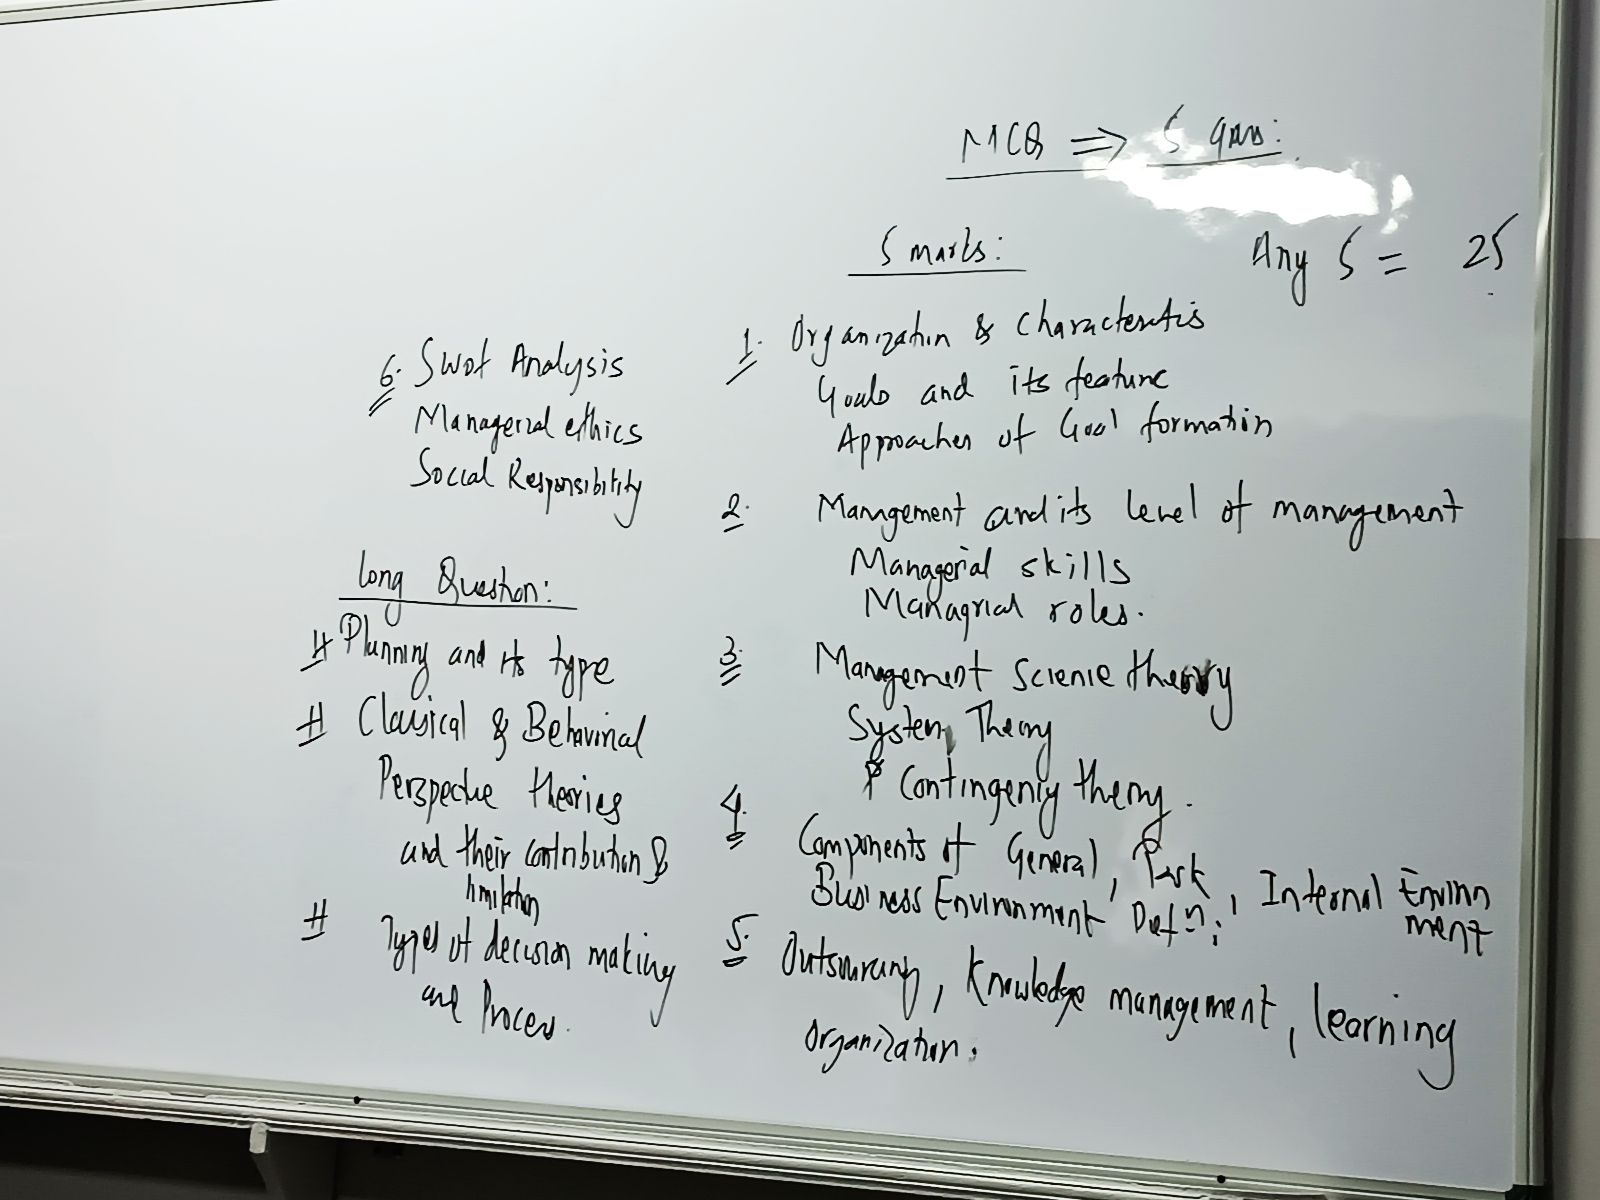 MCQ ⇒ 5 qns:
5 marks: Any 5 = 25
1. Organization & Characteristis
Goals and its feature
Approaches of Goal formation
2. Management and its level of management
Managerial skills
Managrial roles.
3. Management Science theory
System Theory
Contingency theory.
4. Components of General, Task, Internal Environ
ment
Business Environment Defn:
5. Outsourcing, Knowledge management, learning
organization.
6. Swot Analysis
Managerial ethics
Social Responsibility
Long Question:
# Planning and its type
# Classical & Behavioral
Perspective theories
and their contribution &
limitation
# Types of decision making
and Process.